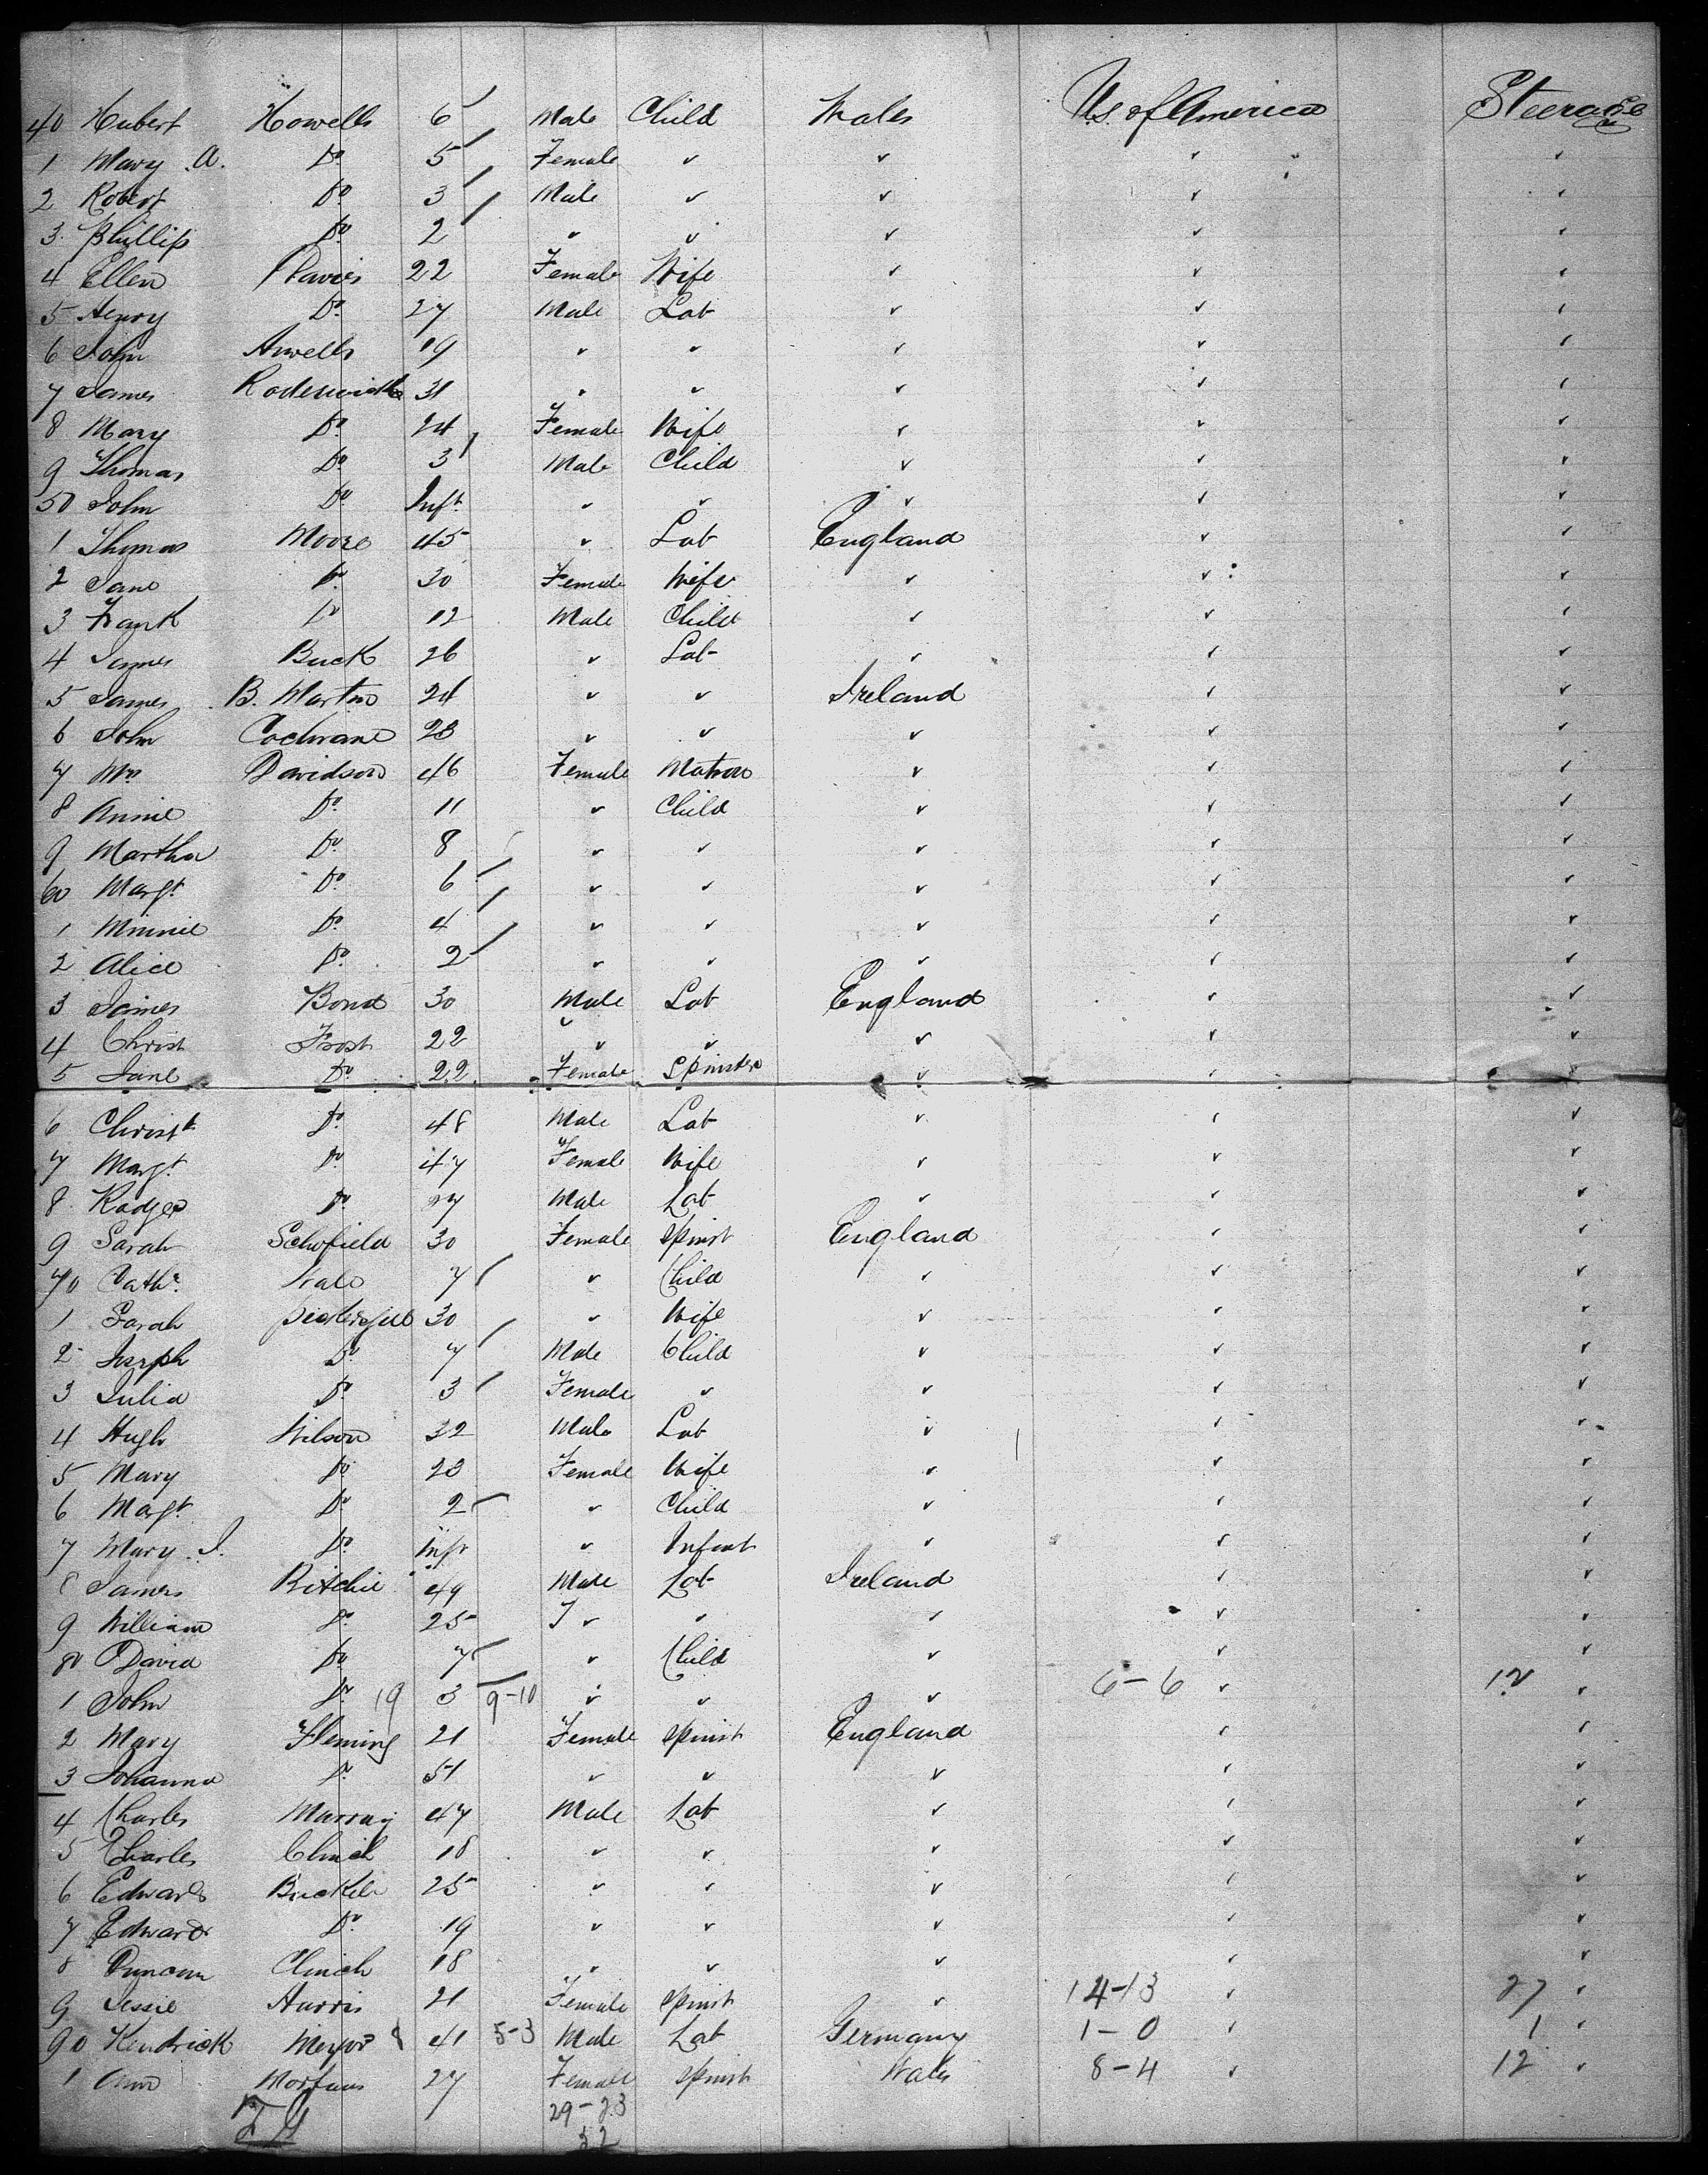 40 Hubert Howells 6 Male Child Wales U.S. of America Steerage
1 Mary A. Do 5 Female " " " "
2 Robert Do 3 Male " " " "
3 Phillip Do 2 " " " " "
4 Ellen Davies 22 Female Wife " " "
5 Henry Do 27 Male Lab " " "
6 John Arwells 19 " " " " "
7 James 31 " " " " "
8 Mary Do 24 Female Wife " " "
9 Thomas Do 3 Male Child " " "
50 John Do Inft " " " " "
1 Thomas Moore 45 " Lab England " "
2 Jane Do 30 Female Wife " " "
3 Frank Do 12 Male Child " " "
4 James Buck 26 " Lab " " "
5 James B. Martin 24 " " Ireland " "
6 John Cochrane 23 " " " " "
7 Mrs Davidson 46 Female Matron " " "
8 Annie Do 11 " Child " " "
9 Martha Do 8 " " " " "
60 Margt Do 6 " " " " "
1 Minnie Do 4 " " " " "
2 Alice Do 2 " " " " "
3 James Bond 30 Male Lab England " "
4 Christ Frost 22 " " " " "
5 Jane Do 22 Female Spinster " " "
6 Christr Do 48 Male Lab " " "
7 Margt Do 47 Female Wife " " "
8 Rodger Do Male Lab " " "
9 Sarah Schofield 30 Female Spinst England " "
70 Cathe 7 " Child " " "
1 Sarah 30 " Wife " " "
2 Joseph Do 7 Male Child " " "
3 Julia Do 3 Female " " " "
4 Hugh Wilson 32 Male Lab " " "
5 Mary Do 23 Female Wife " " "
6 Margt Do 2 " Child " " "
7 Mary J. Do Inft " Infant " " "
8 James Ritchie 49 Male Lab Ireland " "
9 William Do 25 " " " " "
80 David Do 7 " Child " " "
1 John Do 19 3 9-10 " " " 6-6 " 12 "
2 Mary Fleming 21 Female Spinst England " "
3 Johanna Do 51 " " " " "
4 Charles Murray 47 Male Lab " " "
5 Charles Clinch 18 " " " " "
6 Edward Buckle 25 " " " " "
7 Edward Do 19 " " " " "
8 Duncan Clinch 18 " " " " "
9 Jessie Harris 21 Female Spinst " 14-13 " 27 "
90 Kendrick Meyor 8 41 5-3 Male Lab Germany 1-0 " 1 "
1 Ann 27 Female Spinst Wales 8-4 " 12 "
29-23
52